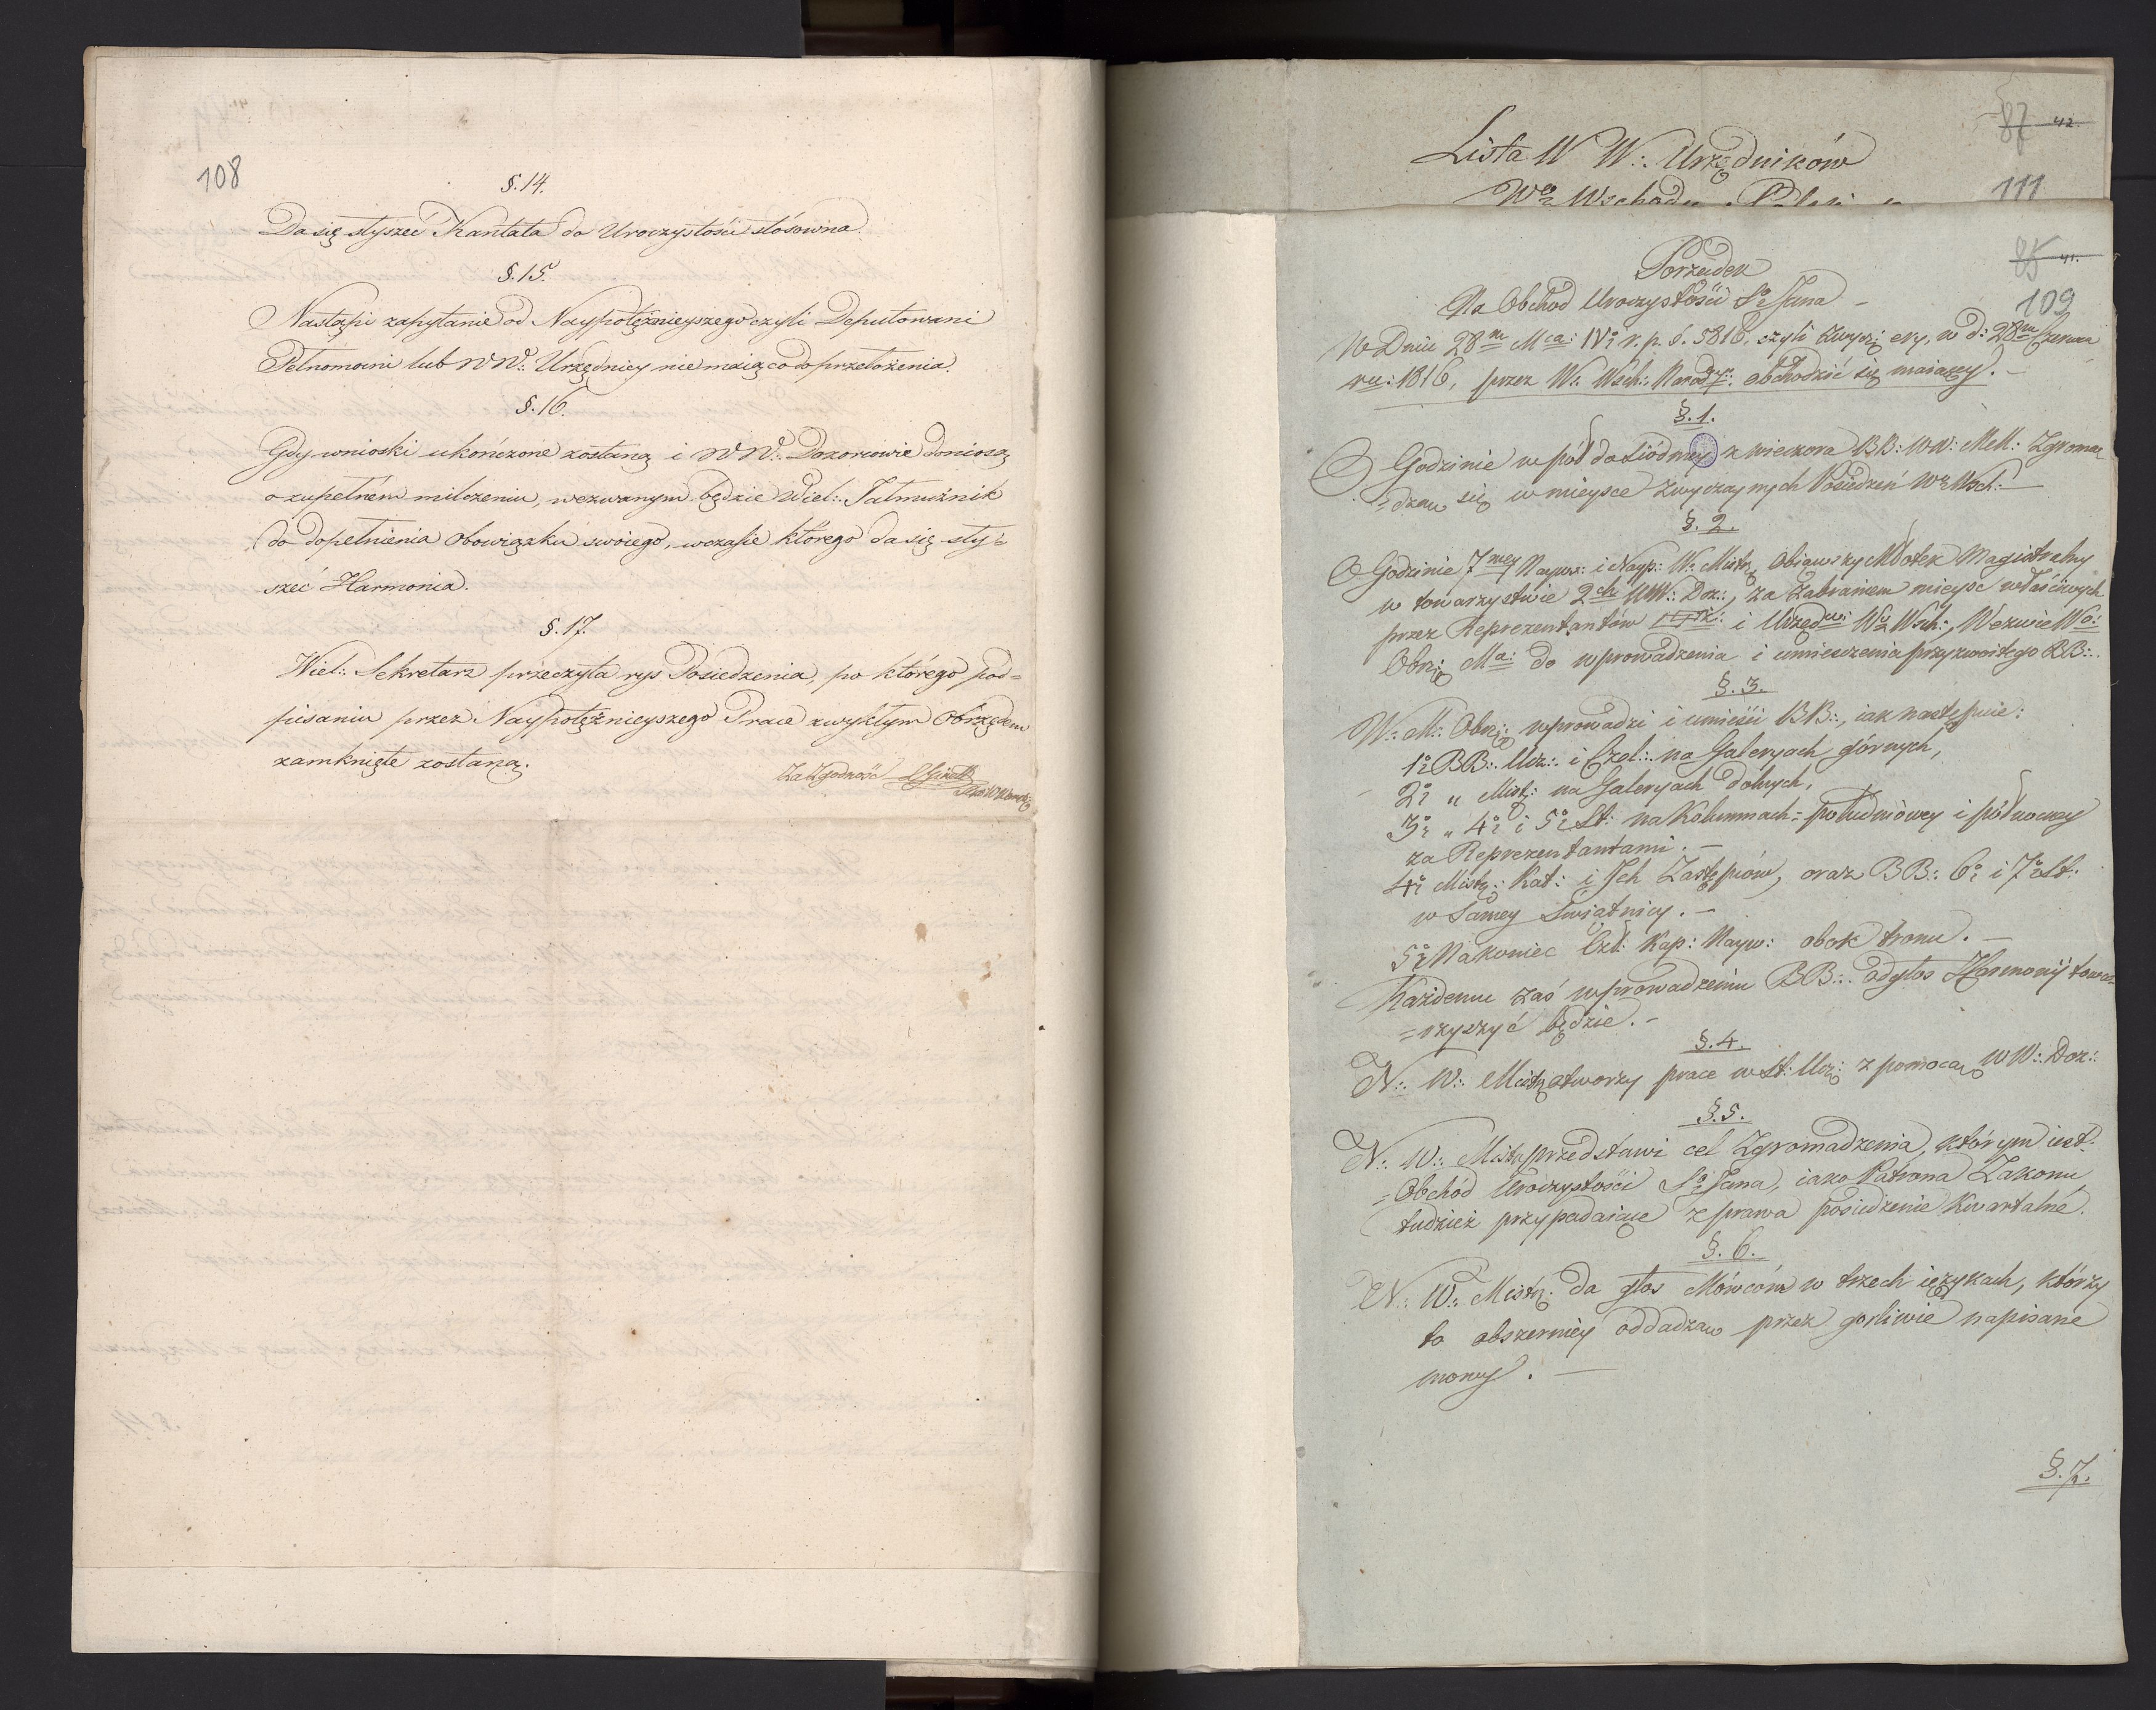 108
§. 14.
Da się słyszeć Kantata do Uroczystości stósowna.
§. 15.
Nastąpi zapytanie od Naypotężnieyszego czyli Deputowani
Pełnomocni lub WW: Urzędnicy nie maią co do przełożenia.
§. 16.
Gdy wnioski ukończone zostaną i WW: Dozorcowie doniosą
o zupełném milczeniu, wezwanym będzie Wiel: Jałmużnik
do dopełnienia obowiązku swoiego, w czasie którego da się sły=
szeć Harmonia.
§. 17.
Wiel: Sekretarz przeczyta rys Posiedzenia, po którego pod=
pisaniu przez Naypotężnieyszego Prace zwykłym Obrzędem
zamknięte zostaną.
Za Zgodność
87 42.
Lista W W: Urzędników
Wo Wschodu
111
85 41.
Porządek
Na Obchod Uroczystości So Jana –
109
W Dniu 28m Mca: IVo r. p. ś. 5816, czyli zwyczy ery, w d: 28m Czerwca
ru: 1816, przez W: Wsch: Narod: obchodzić się maiącey. –
§. 1.
O Godzinie w pół do Siódmey z wieczora BB: WW: Mell: Zgroma=
=dzą się w mieysce zwyczaynych Posiedzeń Wo Wsch: –
§. 2.
O Godzinie 7mey Nayw: i Nayp: W: Mistrz, obiąwszy Młotek Magistralny
w towarzystwie 2ch WW: Doz:, za zabraniem mieysc właściwych
przez Reprezentantów i Urzędu: Wo Wsch:, Wezwie Wo:
Obrzę Ma: do wprowadzenia i umieszczenia przyzwoitego BB:.
§. 3.
W: M: Obrzę: wprowadzi i umieści BB:, iak następuie:
1o BB: Ucz: i Czel: na Galeryach górnych,
2o „ Mist: na Galeryach dolnych,
3o „ 4o i 5o St: na Kolumnach = południowey i północney
za Reprezentantami. –
4o Mistrz: Kat: i Ich Zastępców, oraz BB: 6o i 7o St:
w Samey Swiątnicy. –
5o Nakoniec Czł: Kap: Nayw: obok tronu. –
Każdemu zaś wprowadzeniu BB: odgłos Harmonij towa=
=rzyszyć będzie. –
§. 4.
N: W: Mistrz otworzy prace w St: Ucz: z pomocą WW: Doz:
§. 5.
N: W: Mistrz przedstawi cel Zgromadzenia, którym iest
=Obchód Uroczystości So Jana, iako Patrona Zakonu
tudzież przypadaiące z prawa posiedzenie Kwartalne.
§. 6.
N: W: Mistrz: da głos Mówcóm w trzech ięzykach, którzy
to obszerniey oddadzą przez gorliwie napisane
mowy. –
§. 7.